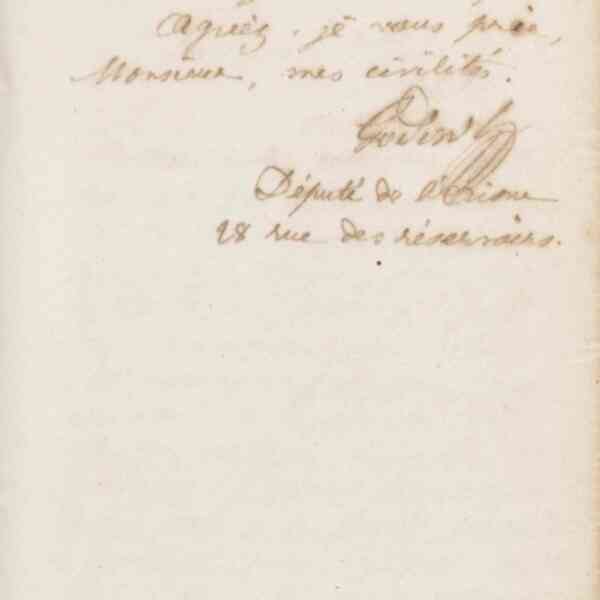 Agréez, je vous prie,
Monsieur, mes civilités.
Godin
Député de l'Aisne
28 rue des réservoirs.